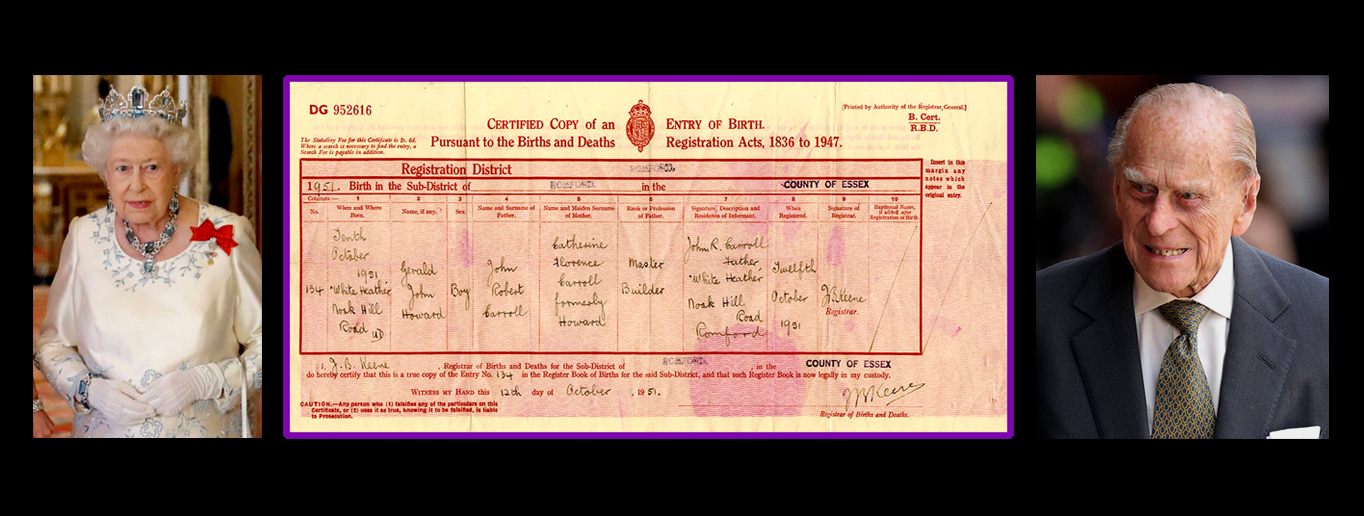 DG 952616
CERTIFIED COPY OF AN ENTRY OF BIRTH.
Pursuant to the Births and Deaths Registration Acts, 1836 to 1947.
[Printed by Authority of the Registrar General.]
B. Cert.
R.B.D.
The Statutory Fee for this Certificate is 2s. 6d.
Where a search is necessary to find the entry, a
Search Fee is payable in addition.
Insert in this
margin any
notes which
appear in the
original entry.
Registration District ROMFORD.
1951. Birth in the Sub-District of ROMFORD. in the COUNTY OF ESSEX
Columns:— 1 2 3 4 5 6 7 8 9 10
No.
When and Where
Born.
Name, if any.
Sex.
Name and Surname of
Father.
Name and Maiden Surname
of Mother.
Rank or Profession
of Father.
Signature, Description and
Residence of Informant.
When
Registered.
Signature of
Registrar.
Baptismal Name,
if added after
Registration of Birth.
134
Tenth
October
1951
"White Heather"
Noak Hill
Road UD
Gerald
John
Howard
Boy
John
Robert
Carroll
Catherine
Florence
Carroll
formerly
Howard
Master
Builder
John R. Carroll
Father,
"White Heather"
Noak Hill
Road
Romford
Twelfth
October
1951
J.B. Keene
Registrar.
I, J. B. Keene, Registrar of Births and Deaths for the Sub-District of ROMFORD. in the COUNTY OF ESSEX
do hereby certify that this is a true copy of the Entry No. 134 in the Register Book of Births for the said Sub-District, and that such Register Book is now legally in my custody.
WITNESS MY HAND this 12th day of October, 1951.
CAUTION.—Any person who (1) falsifies any of the particulars on this
Certificate, or (2) uses it as true, knowing it to be falsified, is liable
to Prosecution.
J B Keene
Registrar of Births and Deaths.